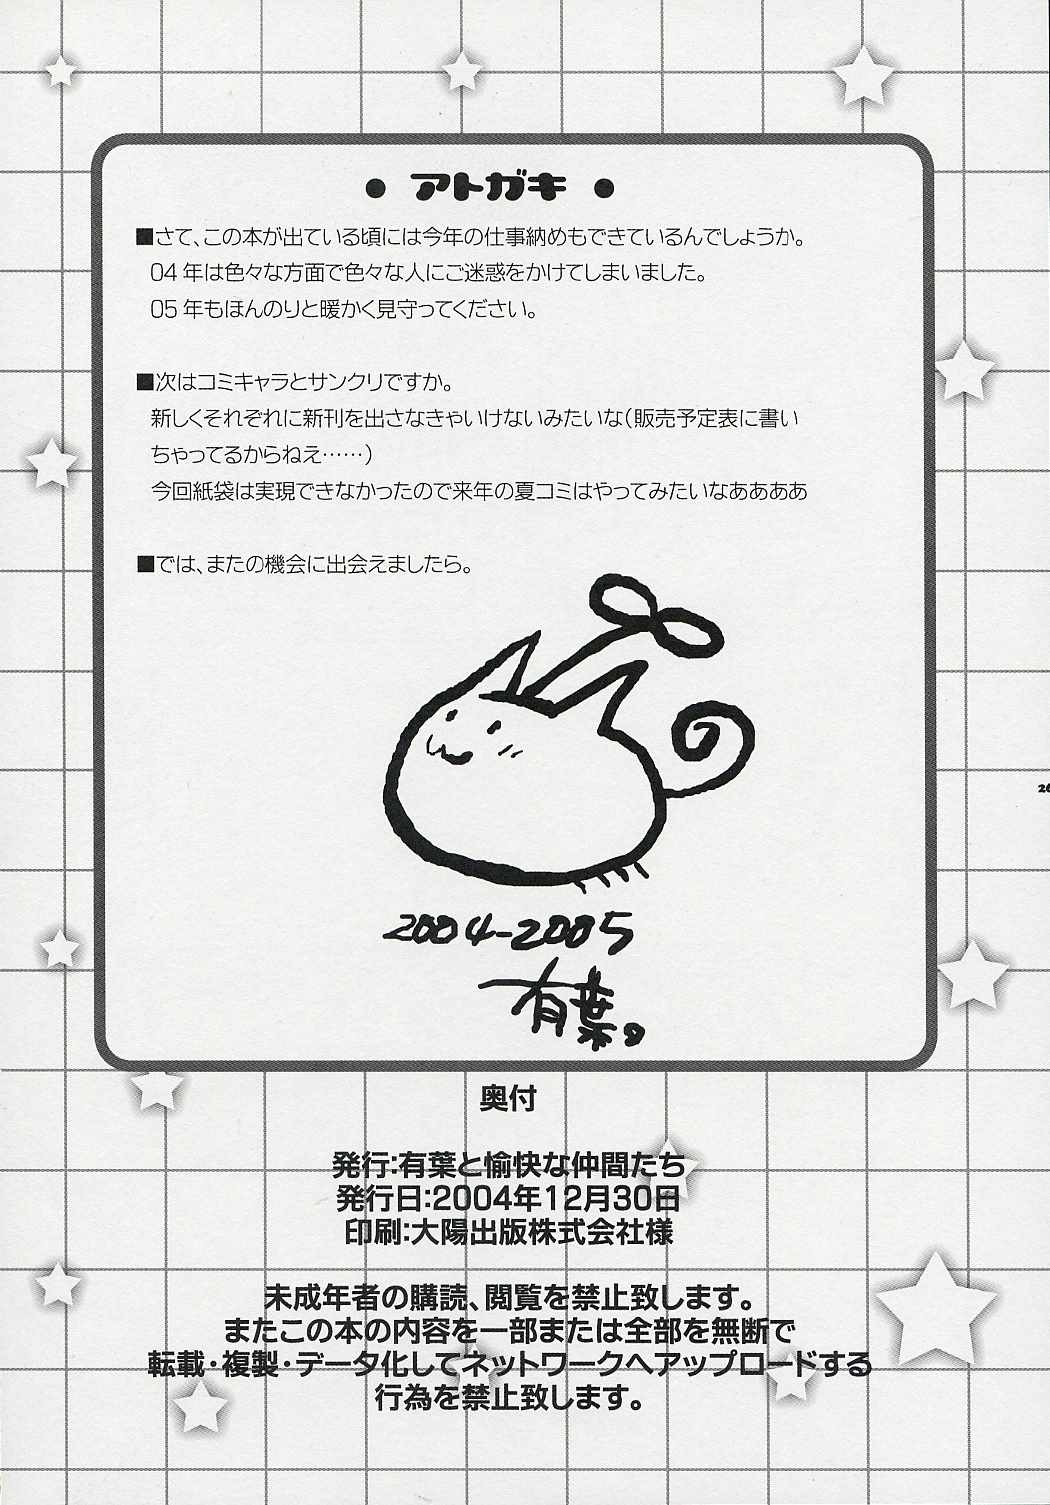 ● アトガキ ●
■さて、この本が出ている頃には今年の仕事納めもできているんでしょうか。
04年は色々な方面で色々な人にご迷惑をかけてしまいました。
05年もほんのりと暖かく見守ってください。
■次はコミキャラとサンクリですか。
新しくそれぞれに新刊を出さなきゃいけないみたいな(販売予定表に書い
ちゃってるからねえ……)
今回紙袋は実現できなかったので来年の夏コミはやってみたいなああああ
■では、またの機会に出会えましたら。
2004-2005
有葉。
26
奥付
発行:有葉と愉快な仲間たち
発行日:2004年12月30日
印刷:大陽出版株式会社様
未成年者の購読、閲覧を禁止致します。
またこの本の内容を一部または全部を無断で
転載・複製・データ化してネットワークへアップロードする
行為を禁止致します。